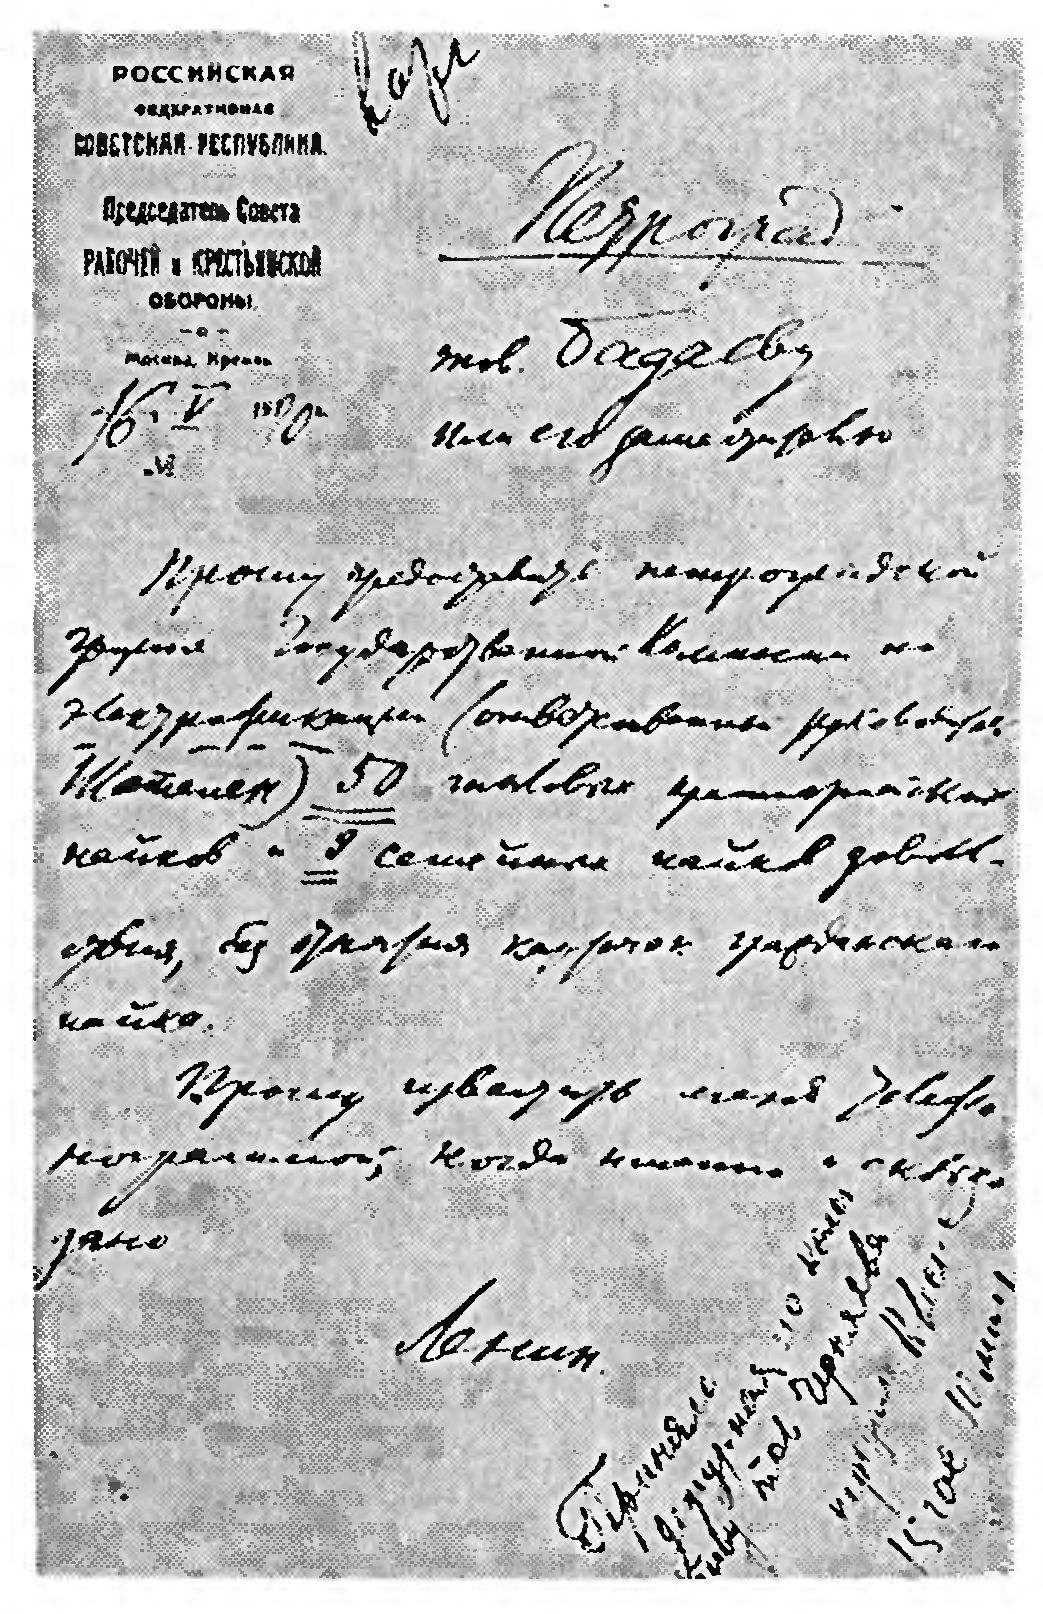 РОССИЙСКАЯ
ФЕДЕРАТИВНАЯ
СОВЕТСКАЯ РЕСПУБЛИКА.
Председатель Совета
РАБОЧЕЙ и КРЕСТЬЯНСКОЙ
ОБОРОНЫ.
Москва, Кремль
16 V 1920 г.
№
Петроград
тов. Бадаеву
или его заместителю
Прошу предоставить петроградской
группе Государственной Комиссии по
электрификации (ответственный руководитель
Шателен) 50 красноармейских
пайков и 9 семейных пайков довольствия,
без отнятия карточек гражданского
пайка.
Прошу известить меня телефонограммой,
когда именно и сколько
дано
Ленин.
Приняла
дежурная
тов Черняева
15 час